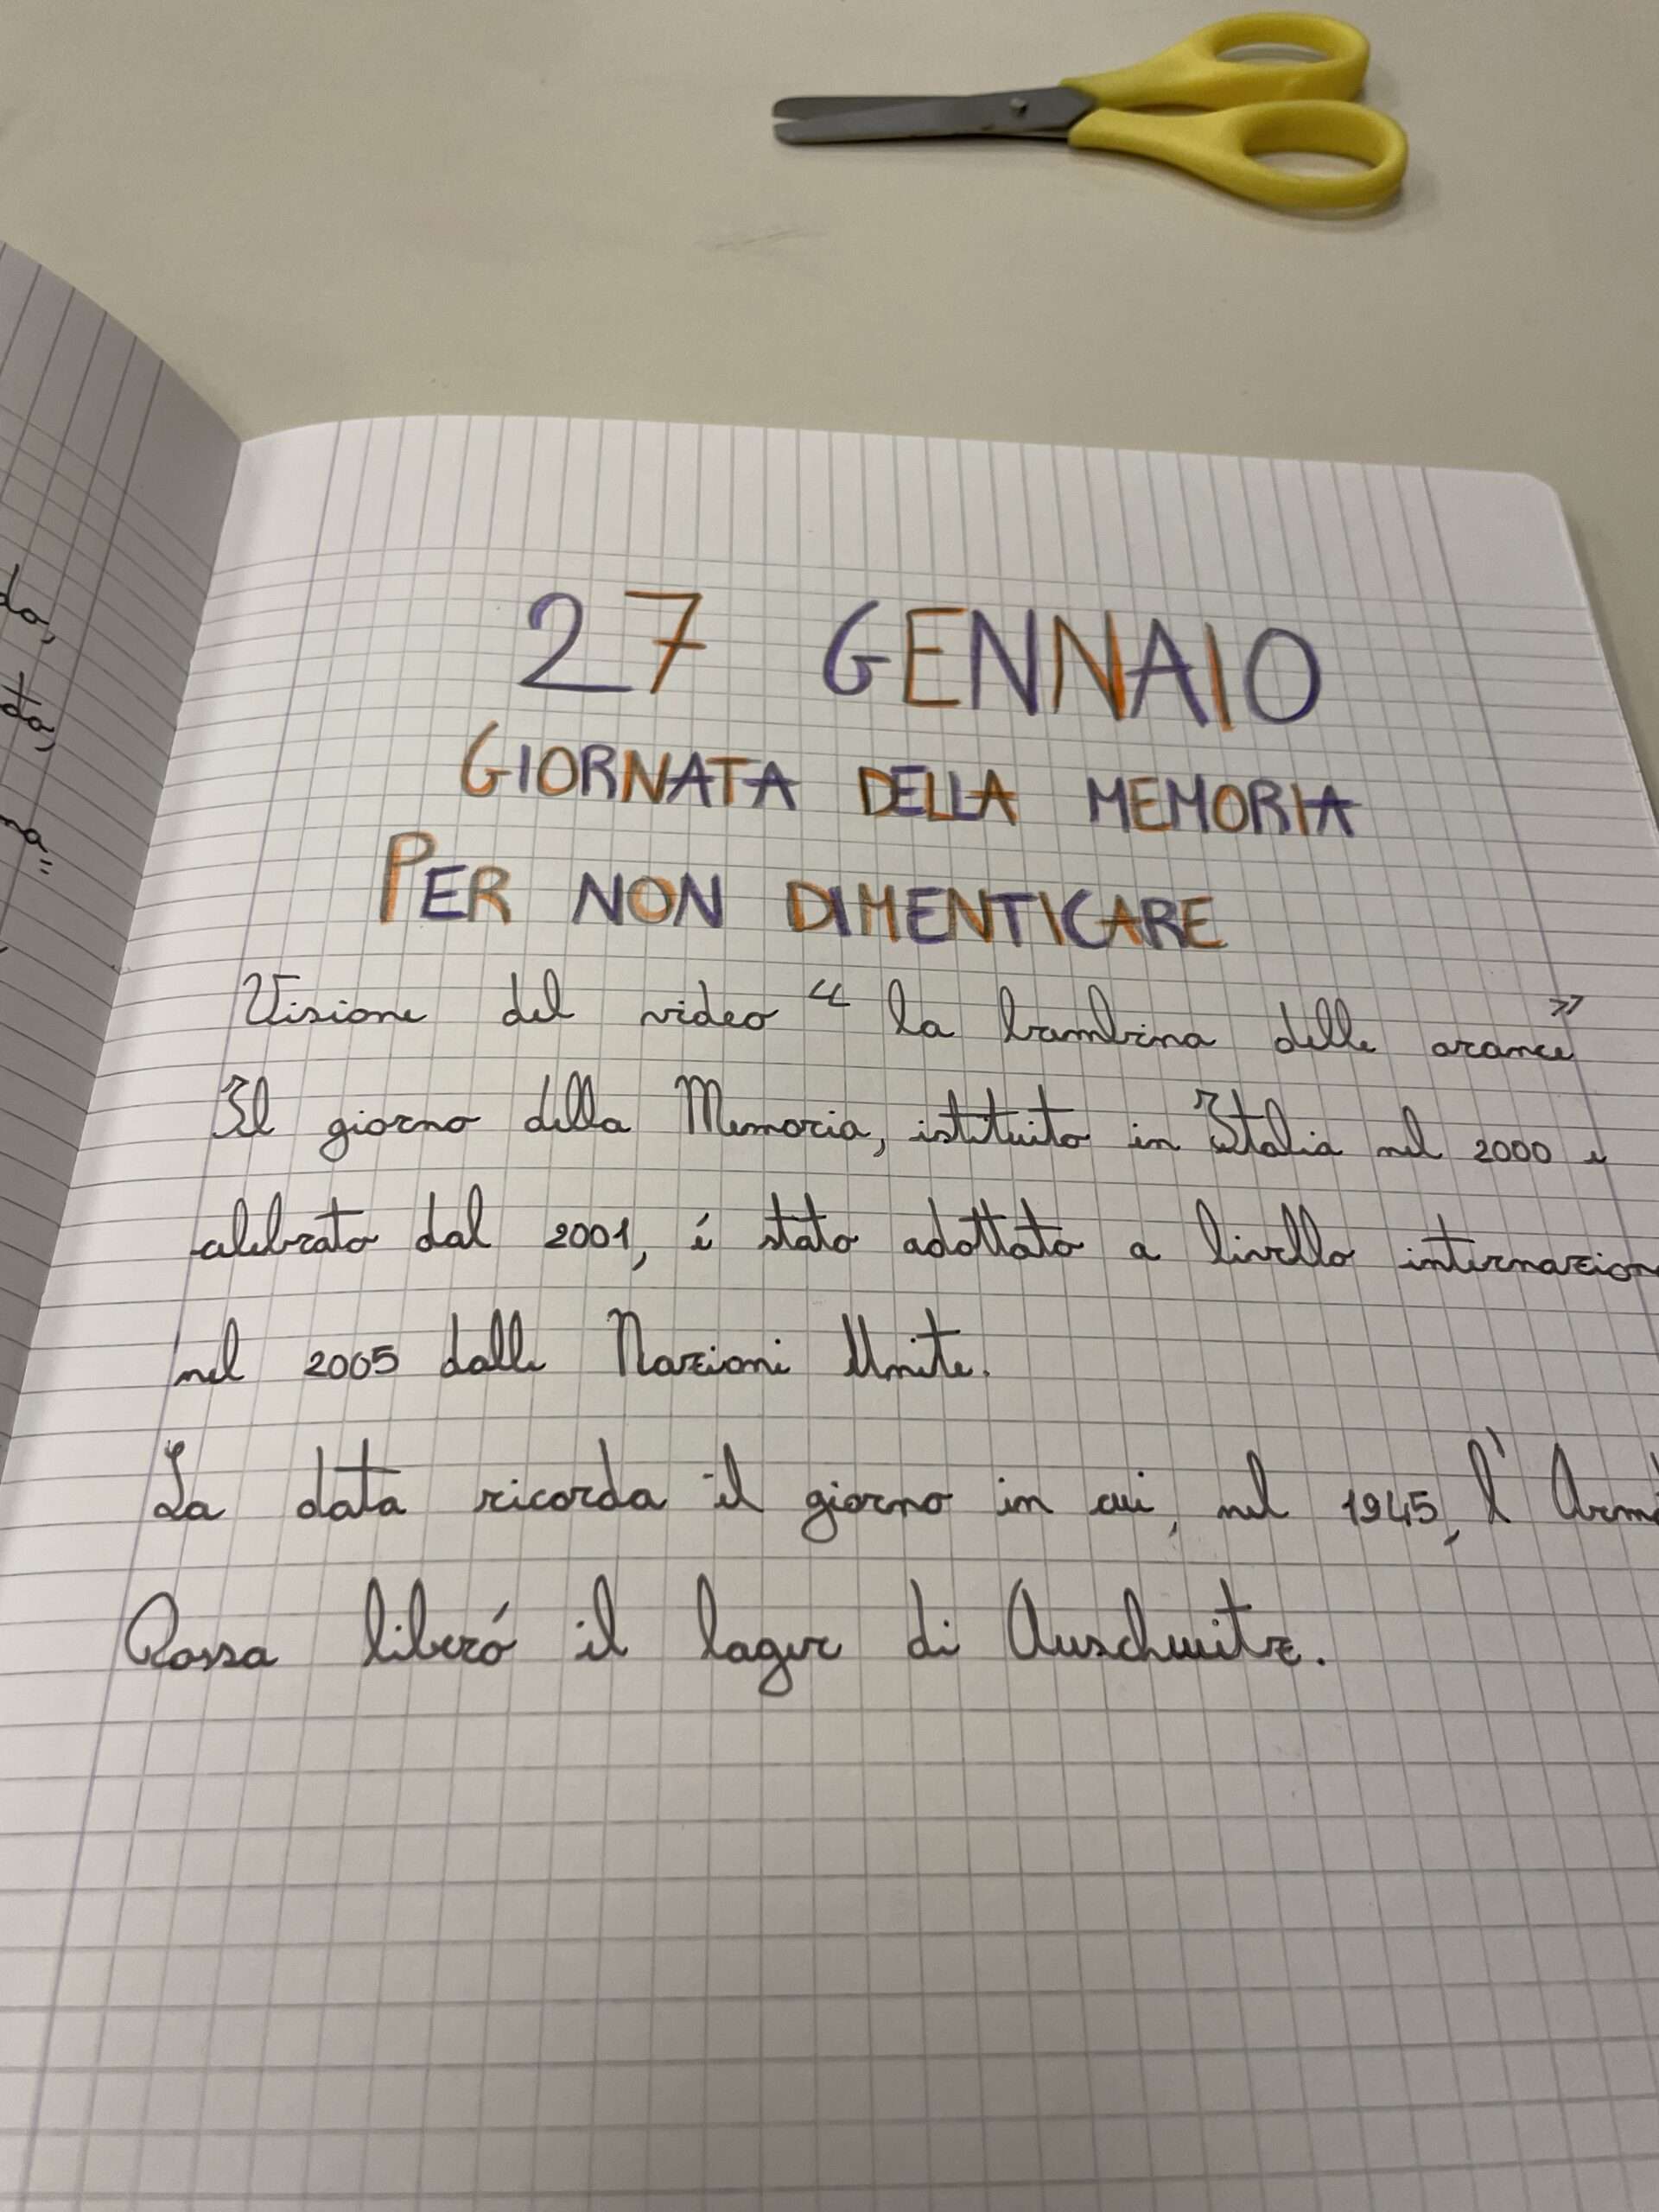 27 GENNAIO
GIORNATA DELLA MEMORIA
PER NON DIMENTICARE
Visione del video "la bambina delle arance"
Il giorno della Memoria, istituito in Italia nel 2000 e
celebrato dal 2001, é stato adottato a livello internazion
nel 2005 dalle Nazioni Unite.
La data ricorda il giorno in cui, nel 1945, l'Arma
Rossa liberó il lager di Auschwitz.